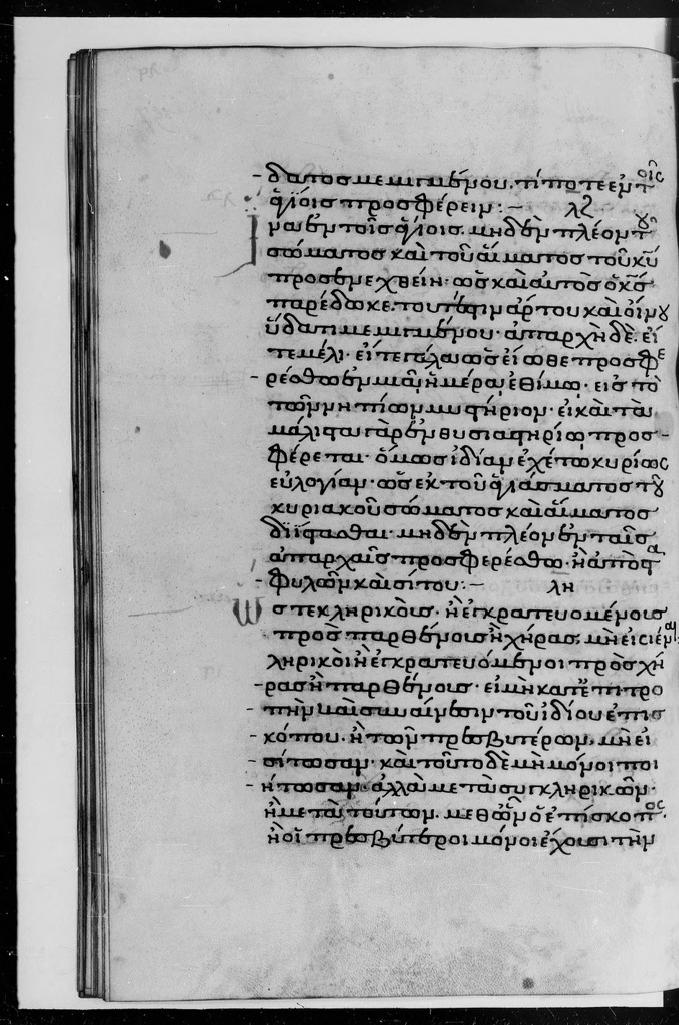 δατος μεμιγμένου. τί ποτε ἐν τοῖς
ἁγίοις προσφέρειν:– λζ
Ἵνα ἐν τοῖς ἁγίοις. μηδὲν πλέον τοῦ
σώματος καὶ τοῦ αἵματος τοῦ κυ
προσενεχθείη· ὡς καὶ αὐτὸς ὁ κς
παρέδωκε. τουτέστιν ἄρτου καὶ οἴνου
ὕδατι μεμιγμένου· ἀπαρχὴ δὲ. εἴ
τε μέλι· εἴτε γάλα ὡς εἴωθε προσφε
ρέσθω ἐν μιᾷ ἡμέρᾳ ἐθίμῳ· εἰς τὸ
τῶν νηπίων μυστήριον· εἰ καὶ τὰ
μάλιστα γὰρ ἐν θυσιαστηρίῳ προσ-
φέρεται· ὅμως ἰδίαν ἐχέτω κυρίως
εὐλογίαν· ὡς ἐκ τοῦ ἁγιάσματος τοῦ
κυριακοῦ σώματος καὶ αἵματος
διΐστασθαι· μηδὲν πλέον ἐν ταῖς
ἀπαρχαῖς προσφερέσθω· ἢ ἀπὸ στα
φυλῶν καὶ σίτου:– λη
Ὥστε κληρικοὶς. ἢ ἐγκρατευομένοις
πρὸς παρθένοις ἢ χήρας; μὴ εἰσιέναι
κληρικοὶ ἢ ἐγκρατευόμενοι πρὸς χή
ρας ἢ παρθένοις· εἰ μὴ κατ' ἐπιτρο
πὴν καὶ συναίνεσιν τοῦ ἰδίου ἐπισ
κόπου. ἢ τῶν πρεσβυτέρων. μὴ εἰ
σίτωσαν· καὶ τοῦτο δὲ μὴ μόνοι ποι
ήτωσαν. ἀλλὰ μετὰ συγκληρικῶν·
ἢ μετὰ τούτων. μεθ' ὧν ὁ ἐπίσκοπος.
ἢ οἱ πρεσβύτεροι μόνοι ἔχουσι τὴν